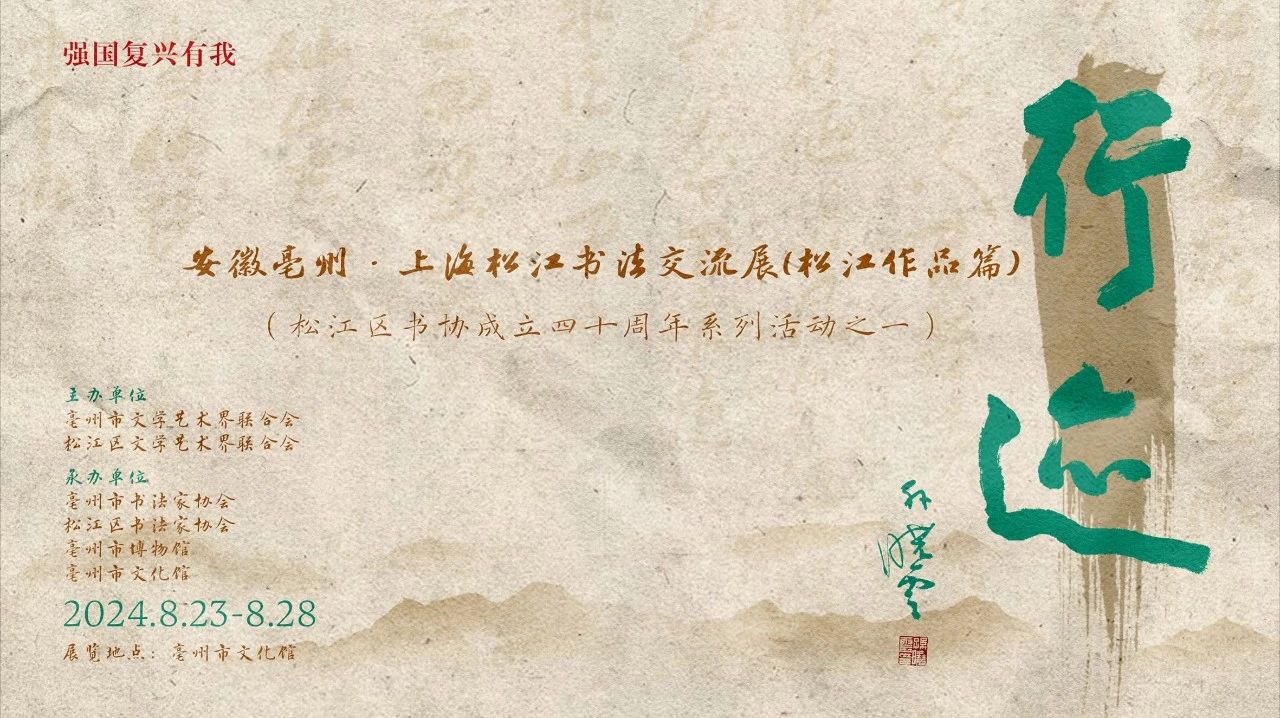 强国复兴有我
行迹
安徽亳州·上海松江书法交流展(松江作品篇)
（松江区书协成立四十周年系列活动之一）
主办单位
亳州市文学艺术界联合会
松江区文学艺术界联合会
承办单位
亳州市书法家协会
松江区书法家协会
亳州市博物馆
亳州市文化馆
2024.8.23-8.28
展览地点：亳州市文化馆
孙晓云